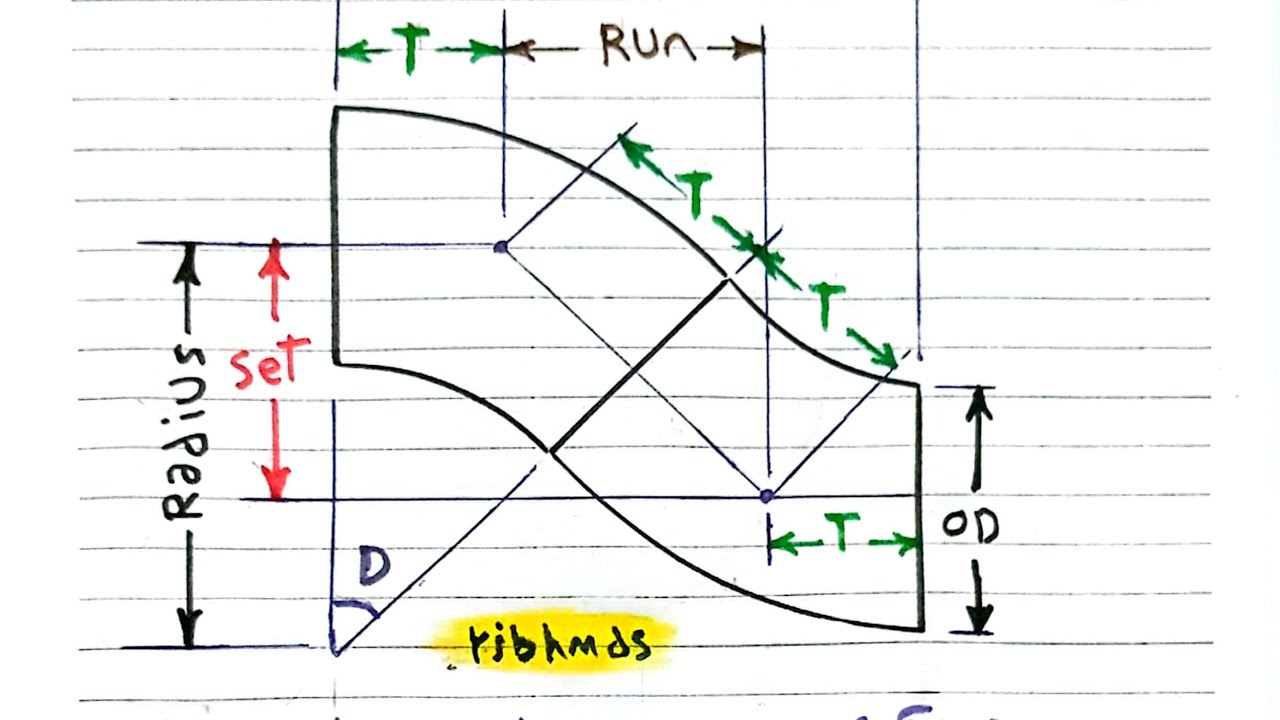 T
Run
T
T
Radius
set
T
OD
D
ribhmds